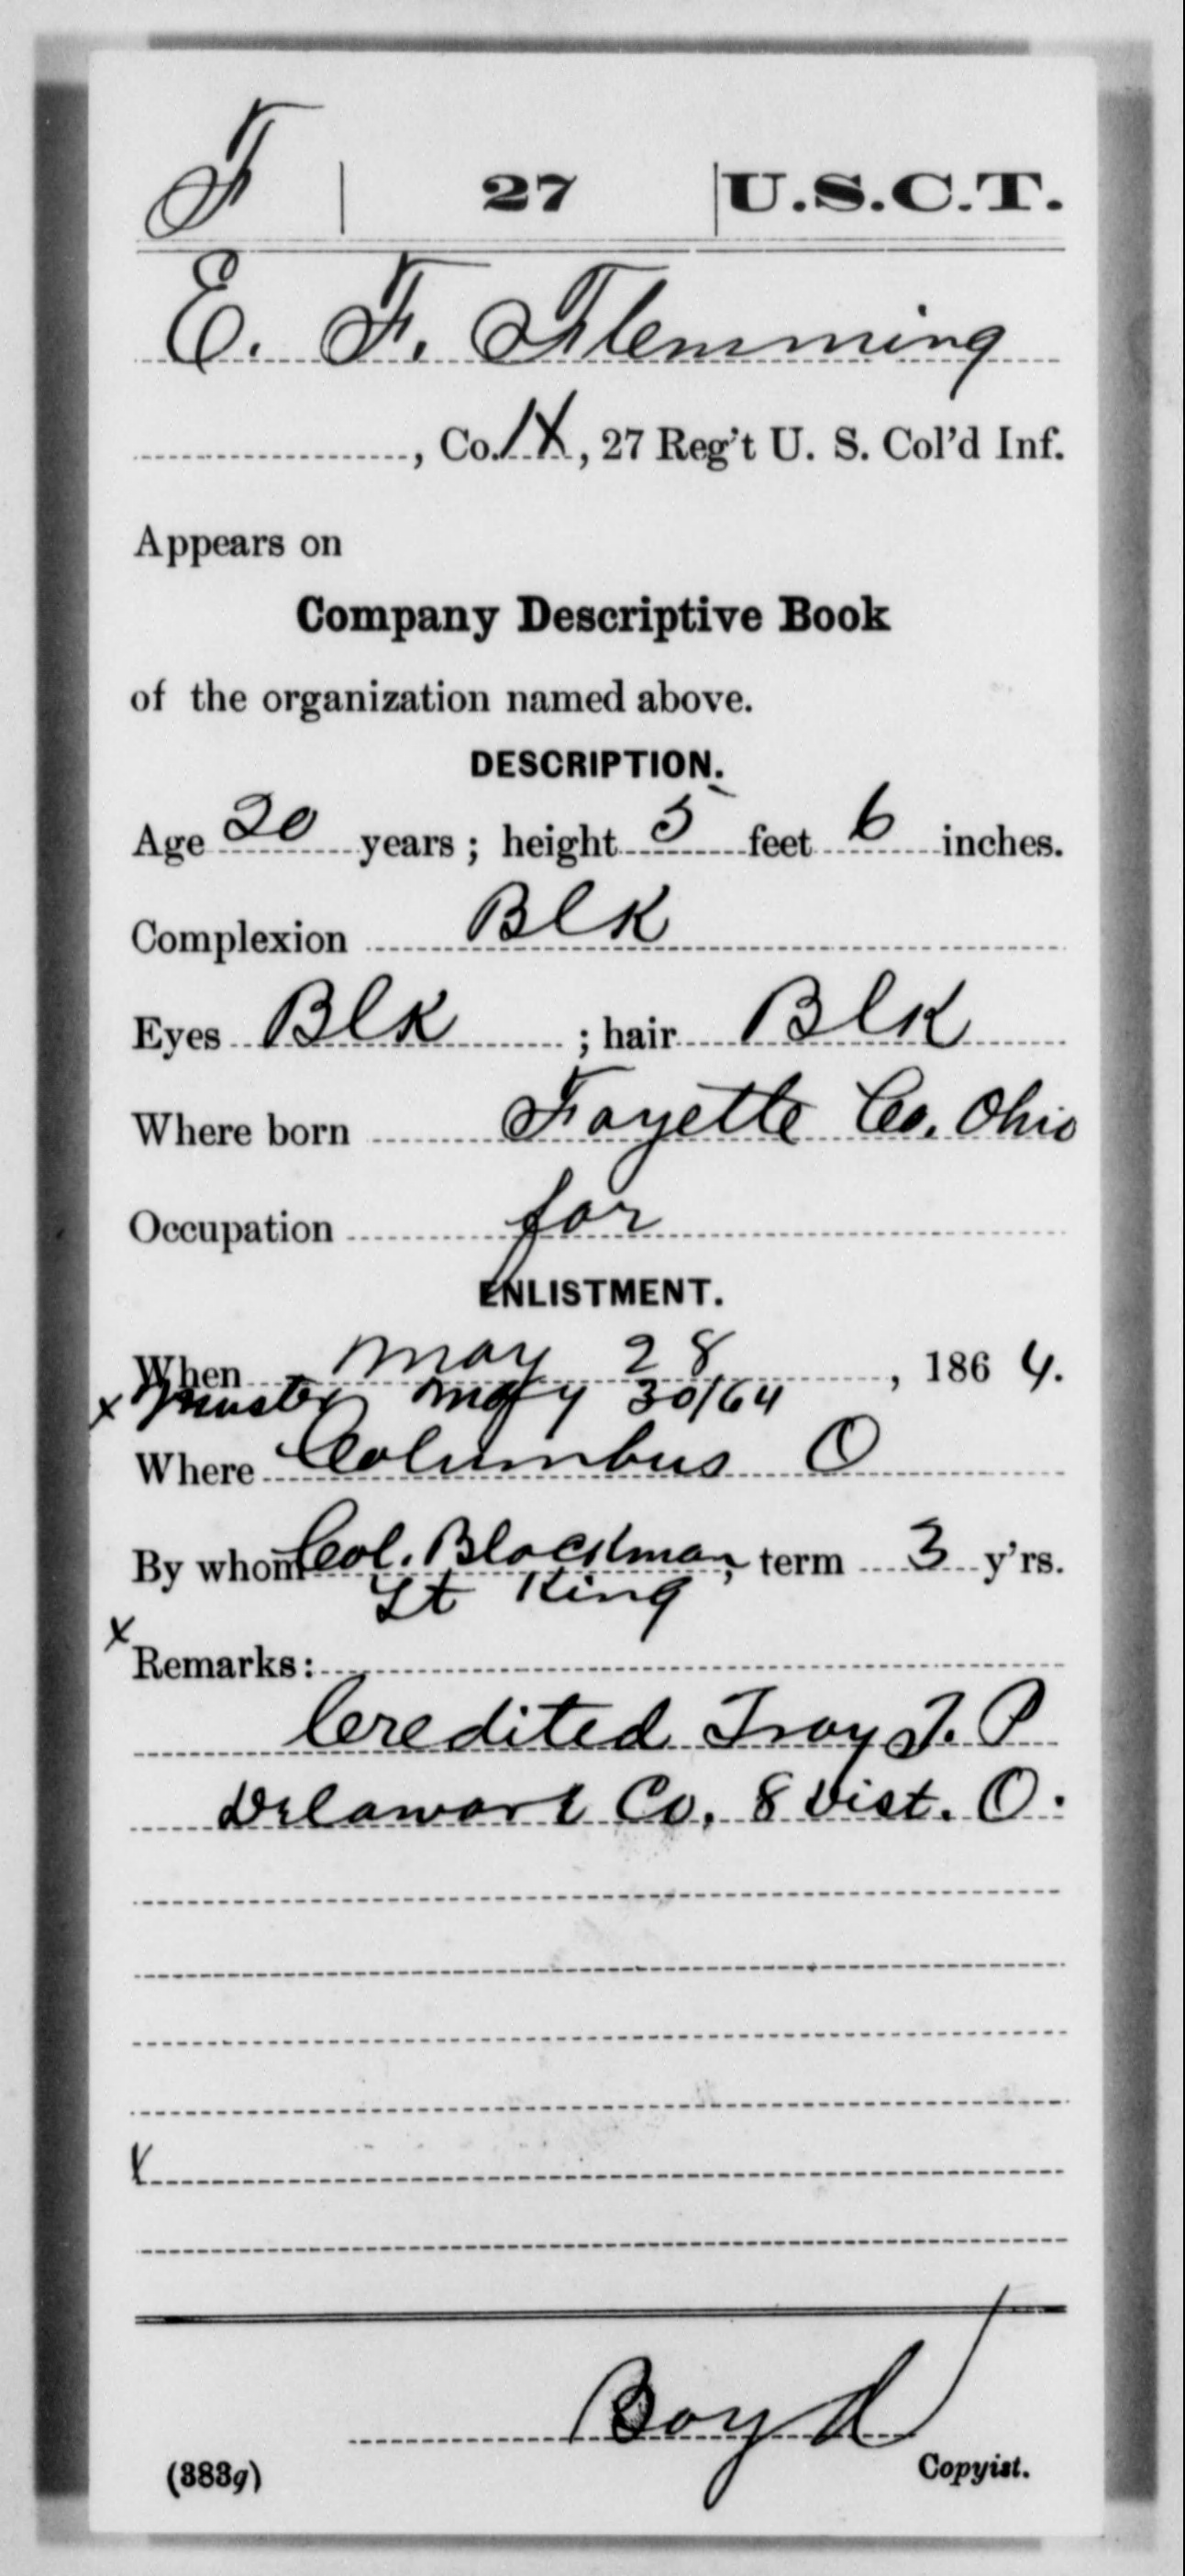 F | 27 | U.S.C.T.
E. F. Flemming
, Co. K, 27 Reg't U. S. Col'd Inf.
Appears on
Company Descriptive Book
of the organization named above.
DESCRIPTION.
Age 20 years; height 5 feet 6 inches.
Complexion Blk
Eyes Blk ; hair Blk
Where born Fayette Co. Ohio
Occupation far
ENLISTMENT.
When May 28, 1864.
x Muster May 30/64
Where Columbus O
By whom Col. Blackman, term 3 y'rs.
Lt King
x
Remarks:
Credited Troy T. P
Delaware Co. 8 Dist. O.
Boyd
(383g) Copyist.